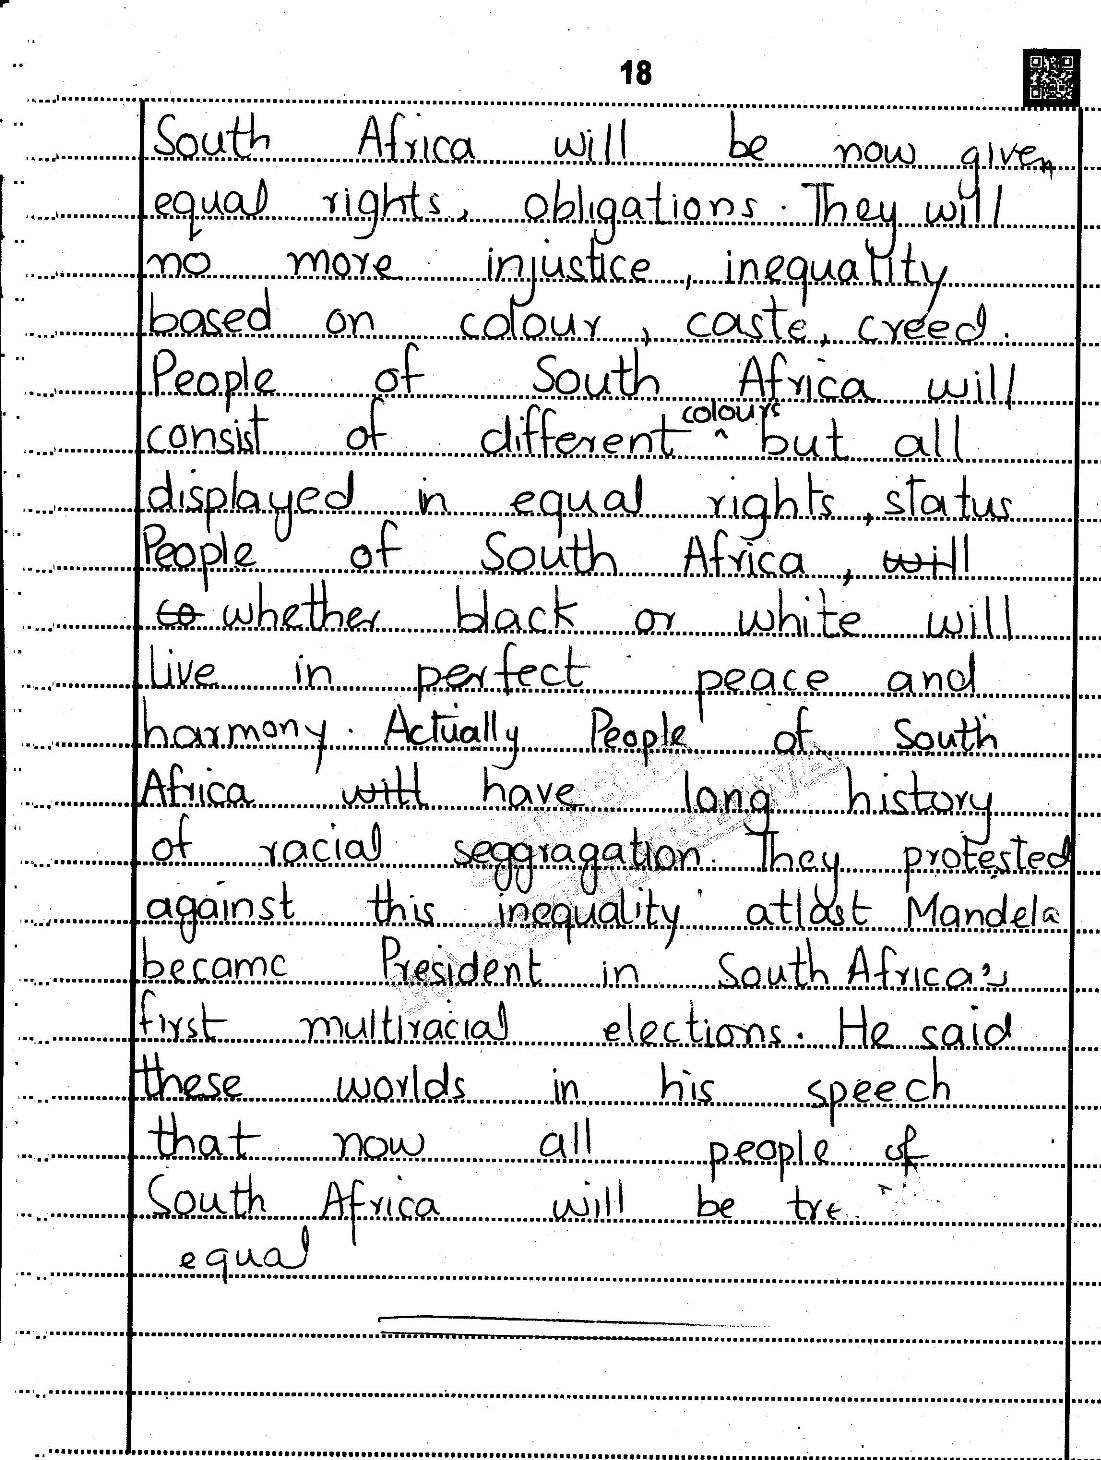 18
South Africa will be now given
equal rights, obligations. They will
no more injustice, inequality
based on colour, caste, creed.
People of South Africa will
consist of different colours but all
displayed in equal rights, status
People of South Africa, will
to whether black or white will
live in perfect peace and
harmony. Actually People of South
Africa will have long history
of racial seggragation. They protested
against this inequality atlast Mandela
became President in South Africa's
first multiracial elections. He said
these worlds in his speech
that now all people of
South Africa will be tre
equal